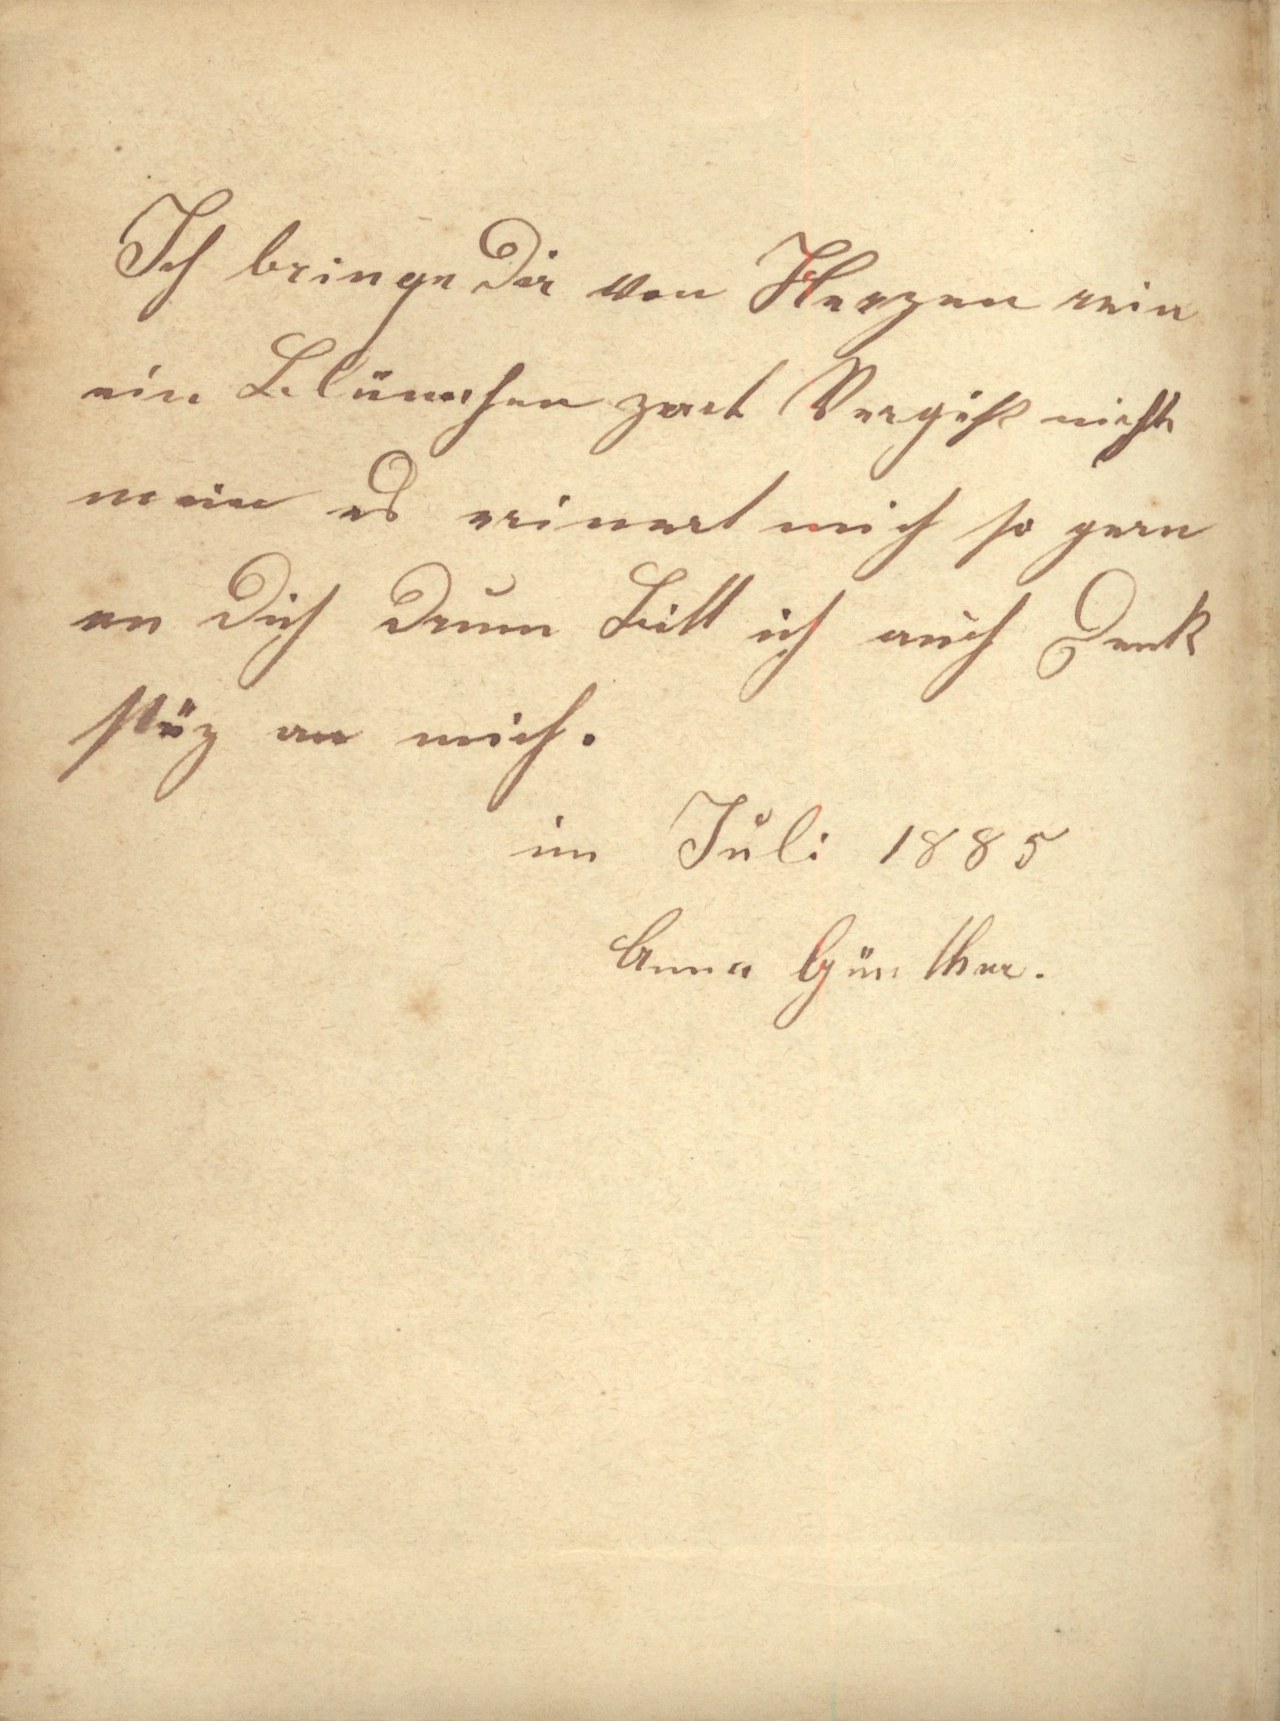 Ich bringe Dir von Herzen rein
ein Blümchen zart Vergiß nicht
mein es erinert mich so gern
an Dich Drum Bitt ich auch Denk
an mich.
im Juli 1885
Anna Günther.